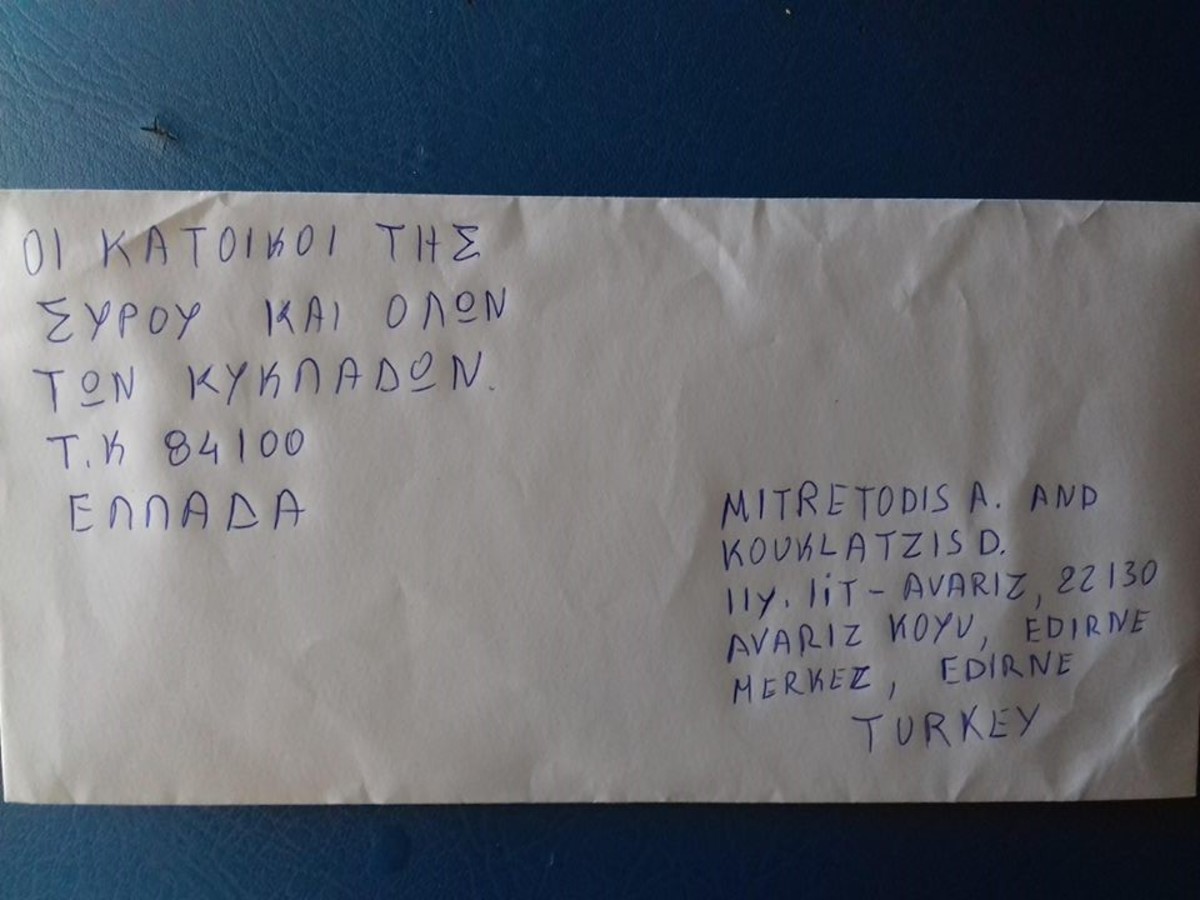 ΟΙ ΚΑΤΟΙΚΟΙ ΤΗΣ
ΣΥΡΟΥ ΚΑΙ ΟΛΩΝ
ΤΩΝ ΚΥΚΛΑΔΩΝ.
Τ.Κ 84100
ΕΛΛΑΔΑ
MITRETODIS A. AND
KOUKLATZIS D.
11y. liT - AVARIZ, 22130
AVARIZ KOYU, EDIRNE
MERKEZ, EDIRNE
TURKEY